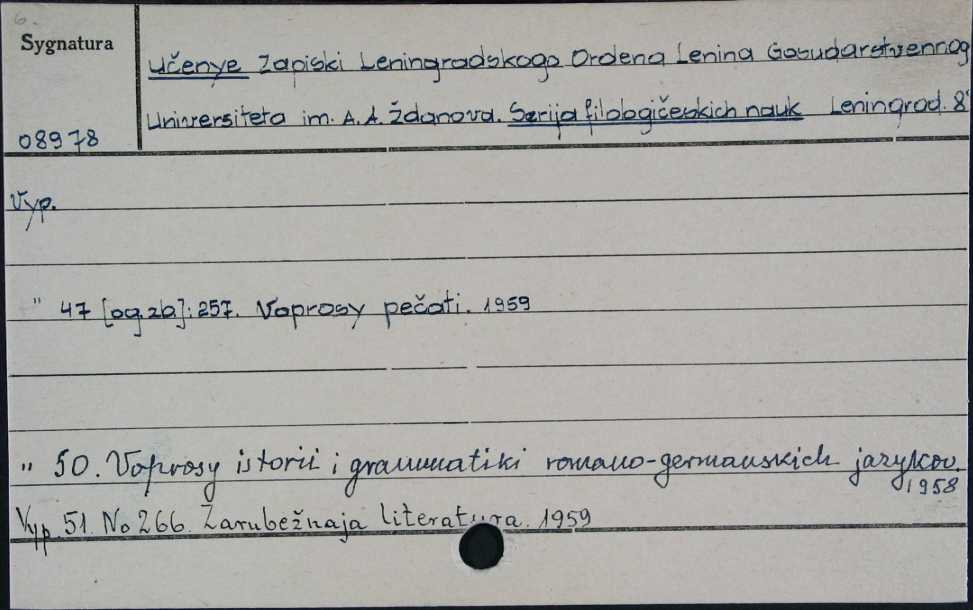 6.
Sygnatura
Učenye Zapiski Leningradskogo Ordena Lenina Gosudarstvennog
Universiteta im. A. A. Ždanova. Serija filologičeskich nauk Leningrad. 8°
08978
Vyp.
" 47 [og.zb]: 257. Voprosy pečati. 1959
" 50. Voprosy istorii i grammatiki romano-germanskich jazykov.
1958
Vyp. 51. No 266. Zarubežnaja literatura. 1959